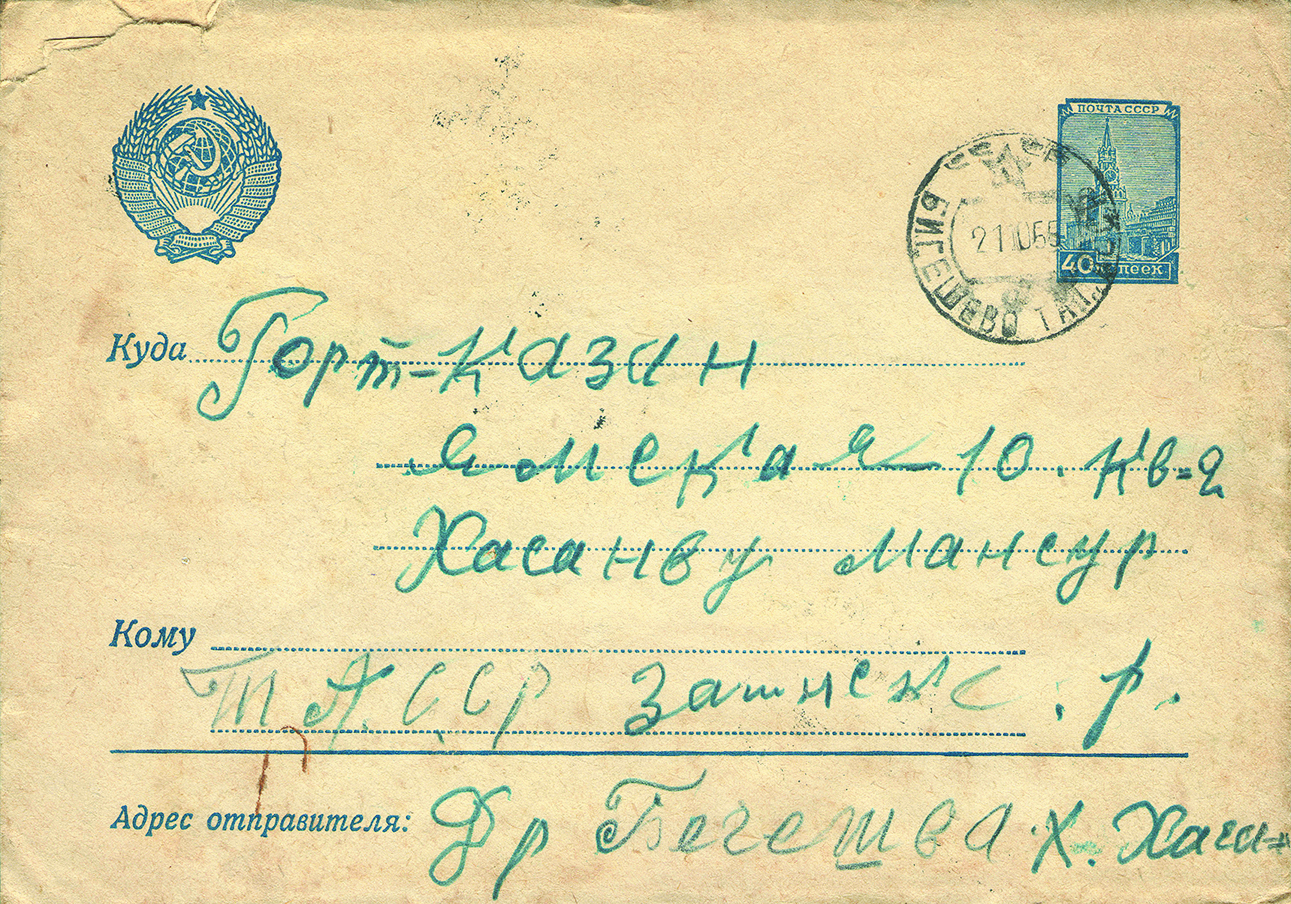 ПОЧТА СССР
40 копеек
БИГЕШЕВО ТАТ.
Куда Горт-Казан
Ямская-10. Кв=2
Хасанву Мансур
Кому
Т.А.ССР Заинскс. р.
Адрес отправителя: Др Бегешва Х. Хаса=